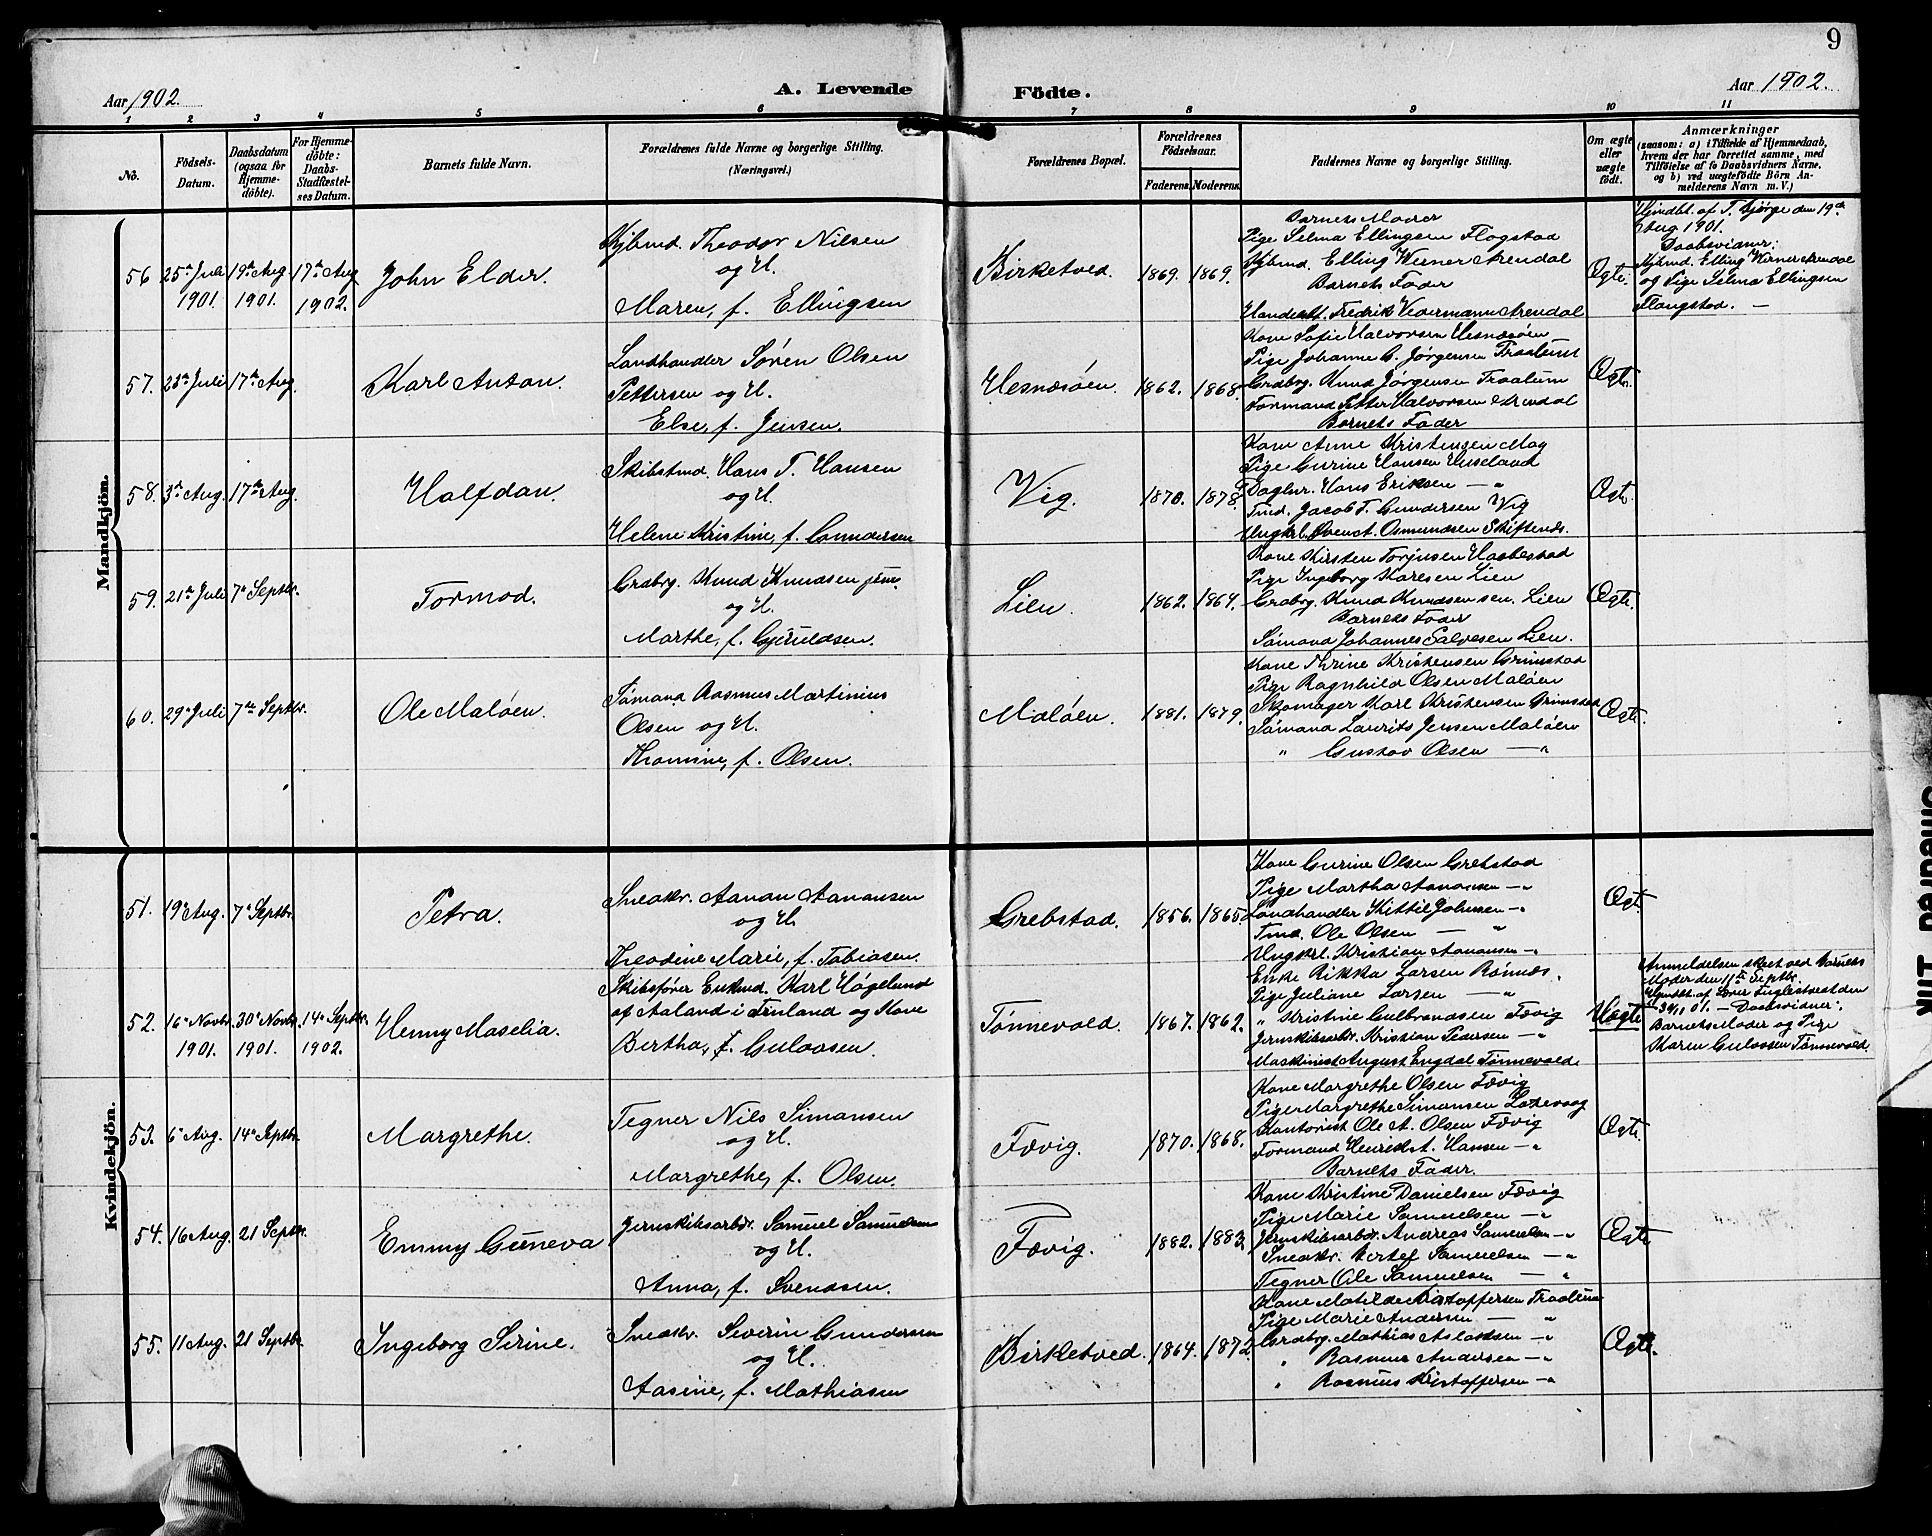 9
Aar 1902.
A. Levende
Födte.
Aar 1902.
1 2 3 4 5 6 7 8 9 10 11
No.
Födsels-
Datum.
Daabsdatum
(ogsaa for
Hjemme-
döbte).
For Hjemme-
döbte:
Daabs-
Stadfæstel-
ses Datum.
Barnets fulde Navn.
Forældrenes fulde Navne og borgerlige Stilling.
(Næringsvei.)
Forældrenes Bopæl.
Forældrenes
Födselsaar.
Faderens. Moderens.
Faddernes Navne og borgerlige Stilling.
Om ægte
eller
uægte
födt.
Anmærkninger
(saasom: a) i Tilfælde af Hjemmedaab,
hvem der har forrettet samme, med
Tilföielse af to Daabsvidners Navne,
og b) ved uægtefödte Börn An-
melderens Navn m. V.)
Mandkjön.
56 25de Juli 1901. 19de Aug 1901. 17de Aug 1902.
John Elder.
Kjbmd. Theodor Nilsen
og H.
Maren, f. Ellingsen
Birketved. 1869. 1869.
Barnets Moder
Pige Selma Ellingsen Flogstad
Kjbmd. Elling Werner Arendal
Barnets Fader
Handelsf. Fredrik Vedermann Arendal
Ægte.
Hjmdbt. af T. Bjørge den 19de
Aug 1901.
Daabsvidner:
Kjbmd. Elling Werner Arendal
og Pige Selma Ellingsen
Flaugstad. —
57. 23de Juli 17de Aug.
Karl Anton.
Landhandler Søren Olsen
Pettersen og H.
Else, f. Jensen.
Hesnæsøen. 1862. 1868.
Kone Sofie Halvorsen Hesnæsøen
Pige Johanne B. Jörgensen Traalum
Grdbrg. Knud Jörgensen Traalum
Formand Petter Halvorsen Arendal
Barnets Fader
Ægte.
58. 3de Aug. 17de Aug.
Halfdan.
Skibstmd. Hans T. Hansen
og H.
Helene Kristine, f. Gundersen
Vig. 1870. 1878.
Kone Anne Kristensen Moy
Pige Gurine Hansen Huseland
Daglnr. Hans Eriksen — "
Tmd. Jacob T. Gundersen Vig
Ungkrl. Svenct. Osmundsen Skiftenes.
Ægte.
59. 21de Juli 7de Septbr.
Tormod.
Grdbrg. Knud Knudsen jun.
og H.
Marthe, f. Gjeruldsen.
Lien. 1862. 1864.
Kone Kirsten Torjusen Haabestad
Pige Ingeborg Karlsen Lien
Grdbrg. Knud Knudsen sen. Lien
Barnets Fader
Sømand Johannes Salvesen Lien.
Ægte.
60. 29de Juli 7de Septbr.
Ole Maløen.
Sømand Rasmus Martinius
Olsen og H.
Thomine, f. Olsen.
Maløen. 1881. 1879.
Kone Thrine Kristensen Grimstad
Pige Ragnhild Olsen Maløen
Skomager Karl Kristensen Grimstad
Sømand Laurits Jensen Maløen
" Gustav Olsen — "
Ægte.
Kvindekjön.
51. 19de Aug. 7de Septbr.
Petra.
Snedkr. Aanon Aanonsen
og H.
Theodine Marie, f. Tobiasen.
Grebstad. 1856. 1865.
Kone Gurine Olsen Grebstad
Pige Martha Aanonsen — "
Landhandler Kittil Johnsen — "
Tmd. Ole Olsen — "
Ungkrl. Kristian Aanonsen — "
Ægt.
52. 16de Novbr. 1901. 30de Novbr. 1901. 14de Septbr. 1902.
Henny Maselia.
Skibsfører Enkmd. Karl Høgelund
af Aaland i Finland og Kone
Bertha, f. Gulovsen.
Tønnevold. 1867. 1862.
Enke Rikka Larsen Rönnes.
Pige Juliane Larsen — "
" Kristine Gulbrandsen Fævig
Jernskibsarbr. Kristian Pedersen — "
Maskinist August Engdal Tønnevold
Uægte
Anmeldelsen skeet ved Barnets
Moder den 11te Septbr.
30/11 01. — Daabsvidner:
Barnets Moder og Pige
Karen Gulovsen Tønnevold.
53. 6de Aug. 14de Septbr.
Margrethe.
Tegner Nils Simonsen
og H.
Margrethe, f. Olsen.
Fævig. 1870. 1868.
Kone Margrethe Olsen Fævig
Pige Margrethe Simonsen
Kontorist Ole A. Olsen Fævig
Formand Henrik A. Hansen — "
Barnets Fader.
Ægte.
54. 16 Aug. 21 Septbr.
Emmy Guneva
Jernskibsarbdr. Samuel Samuelsen
og H.
Anna, f. Svendsen.
Fævig. 1882. 1883.
Kone Kristine Danielsen Fævig
Pige Marie Samuelsen — "
Jernskibsarbdr. Andreas Samuelsen — "
Snedkr. Bertel Samuelsen — "
Tegner Ole Samuelsen — "
Ægte
55. 11 Aug. 21 Septbr.
Ingeborg Serine.
Snedkr. Severin Gundersen
og H.
Aasine, f. Mathiasen
Birketved. 1864. 1872.
Kone Matilde Kristoffersen Traalum
Pige Marie Andersen — "
Grdbrg. Mathias Aslaksen — "
" Rasmus Andersen — "
" Rasmus Kristoffersen — "
Ægte.